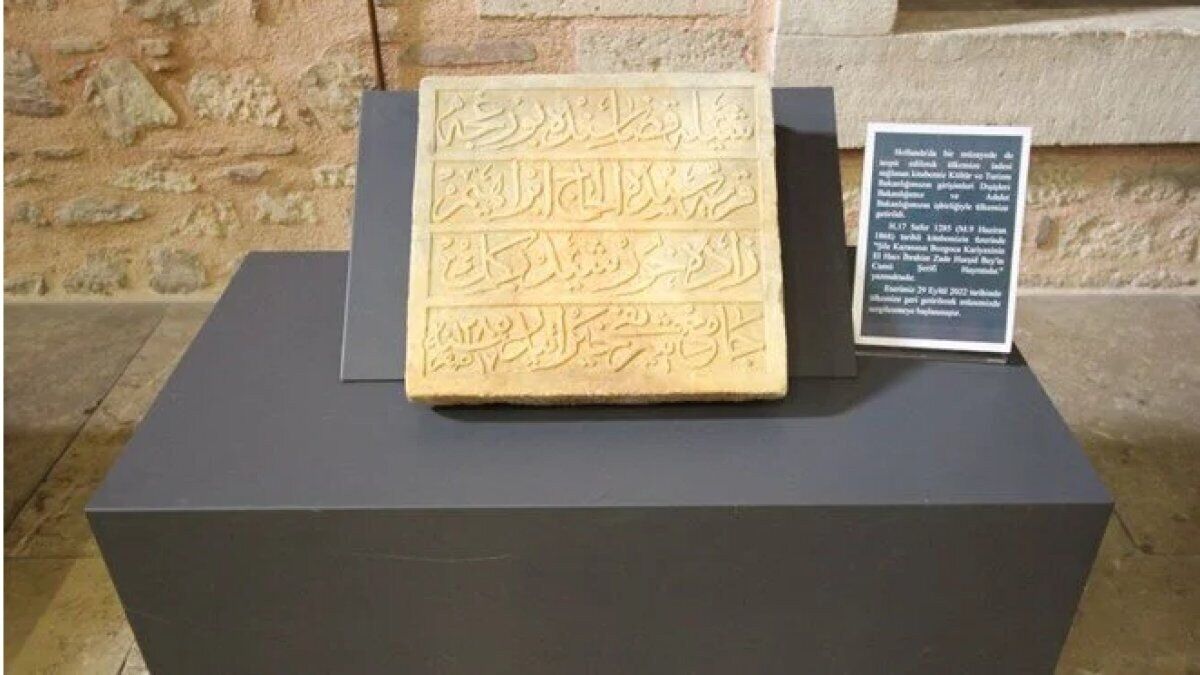 شيله قضاسنده
قريه سنده الحاج ابراهيم
زاده خورشيد بك
جامع شريف خيراتيدر
Hollanda'da bir müzayede de
tespit edilerek ülkemize iadesi
sağlanan kitabemiz Kültür ve Turizm
Bakanlığımızın girişimleri Dışişleri
Bakanlığımız ve Adalet
Bakanlığımızın işbirliğiyle ülkemize
getirildi.
H.17 Safer 1285 (M.9 Haziran
1868) tarihli kitabemizin üzerinde
"Şile Kazasının Bozgoca Kariyesinin
El Hacı İbrahim Zade Hurşid Bey'in
Camii Şerifi Hayratıdır."
yazmaktadır.
Eserimiz 29 Eylül 2022 tarihinde
ülkemize geri getirilerek müzemizde
sergilenmeye başlanmıştır.